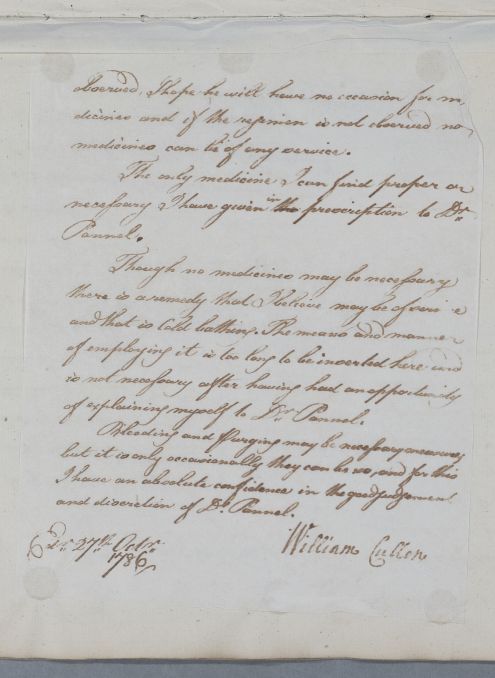 observed, I hope he will have no occasion for me
dicines and if the regimen is not observed no
medicines can be of any service.
The only medicine I can find proper or
necessary I have given in the prescription to Dr.
Pannel.
Though no medicines may be necessary
there is a remedy that I believe may be of service
and that is Cold bathing. The means and manner
of employing it is too long to be inserted here and
is not necessary after having had an opportunity
of explaining myself to Dr. Pannel.
Bleeding and Purging may be necessary
but it is only occasionally they can be so, and for this
I have an absolute confidence in the good judgement
and discretion of Dr. Pannel.
Edr. 27th Octr.
1786
William Cullen